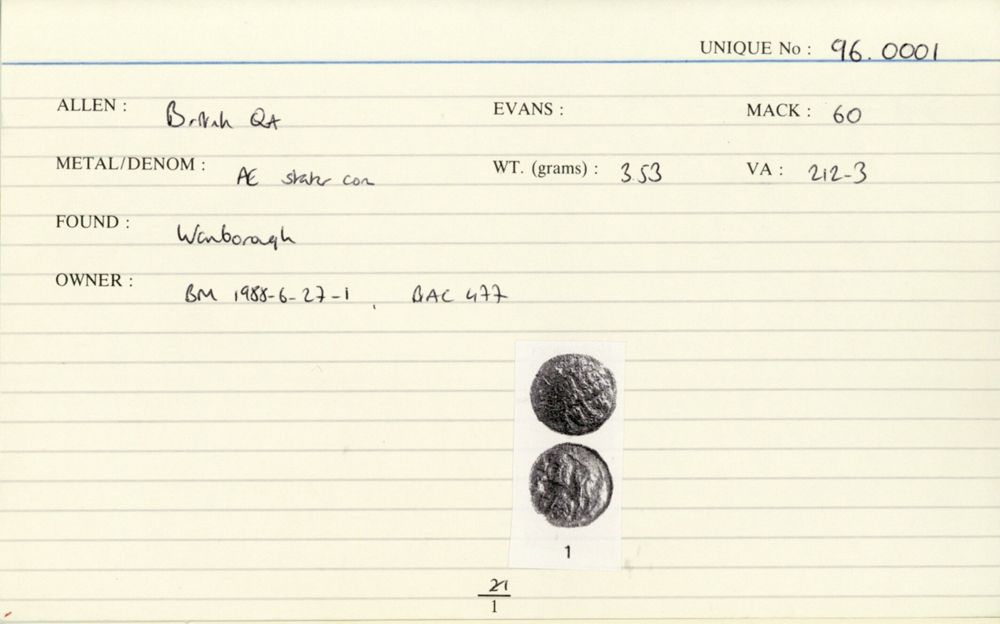 UNIQUE No : 96.0001
ALLEN : British QA EVANS : MACK : 60
METAL/DENOM : AE stater core WT. (grams) : 3.53 VA : 212-3
FOUND : Wanborough
OWNER : BM 1988-6-27-1, BAC 477
1
21
1